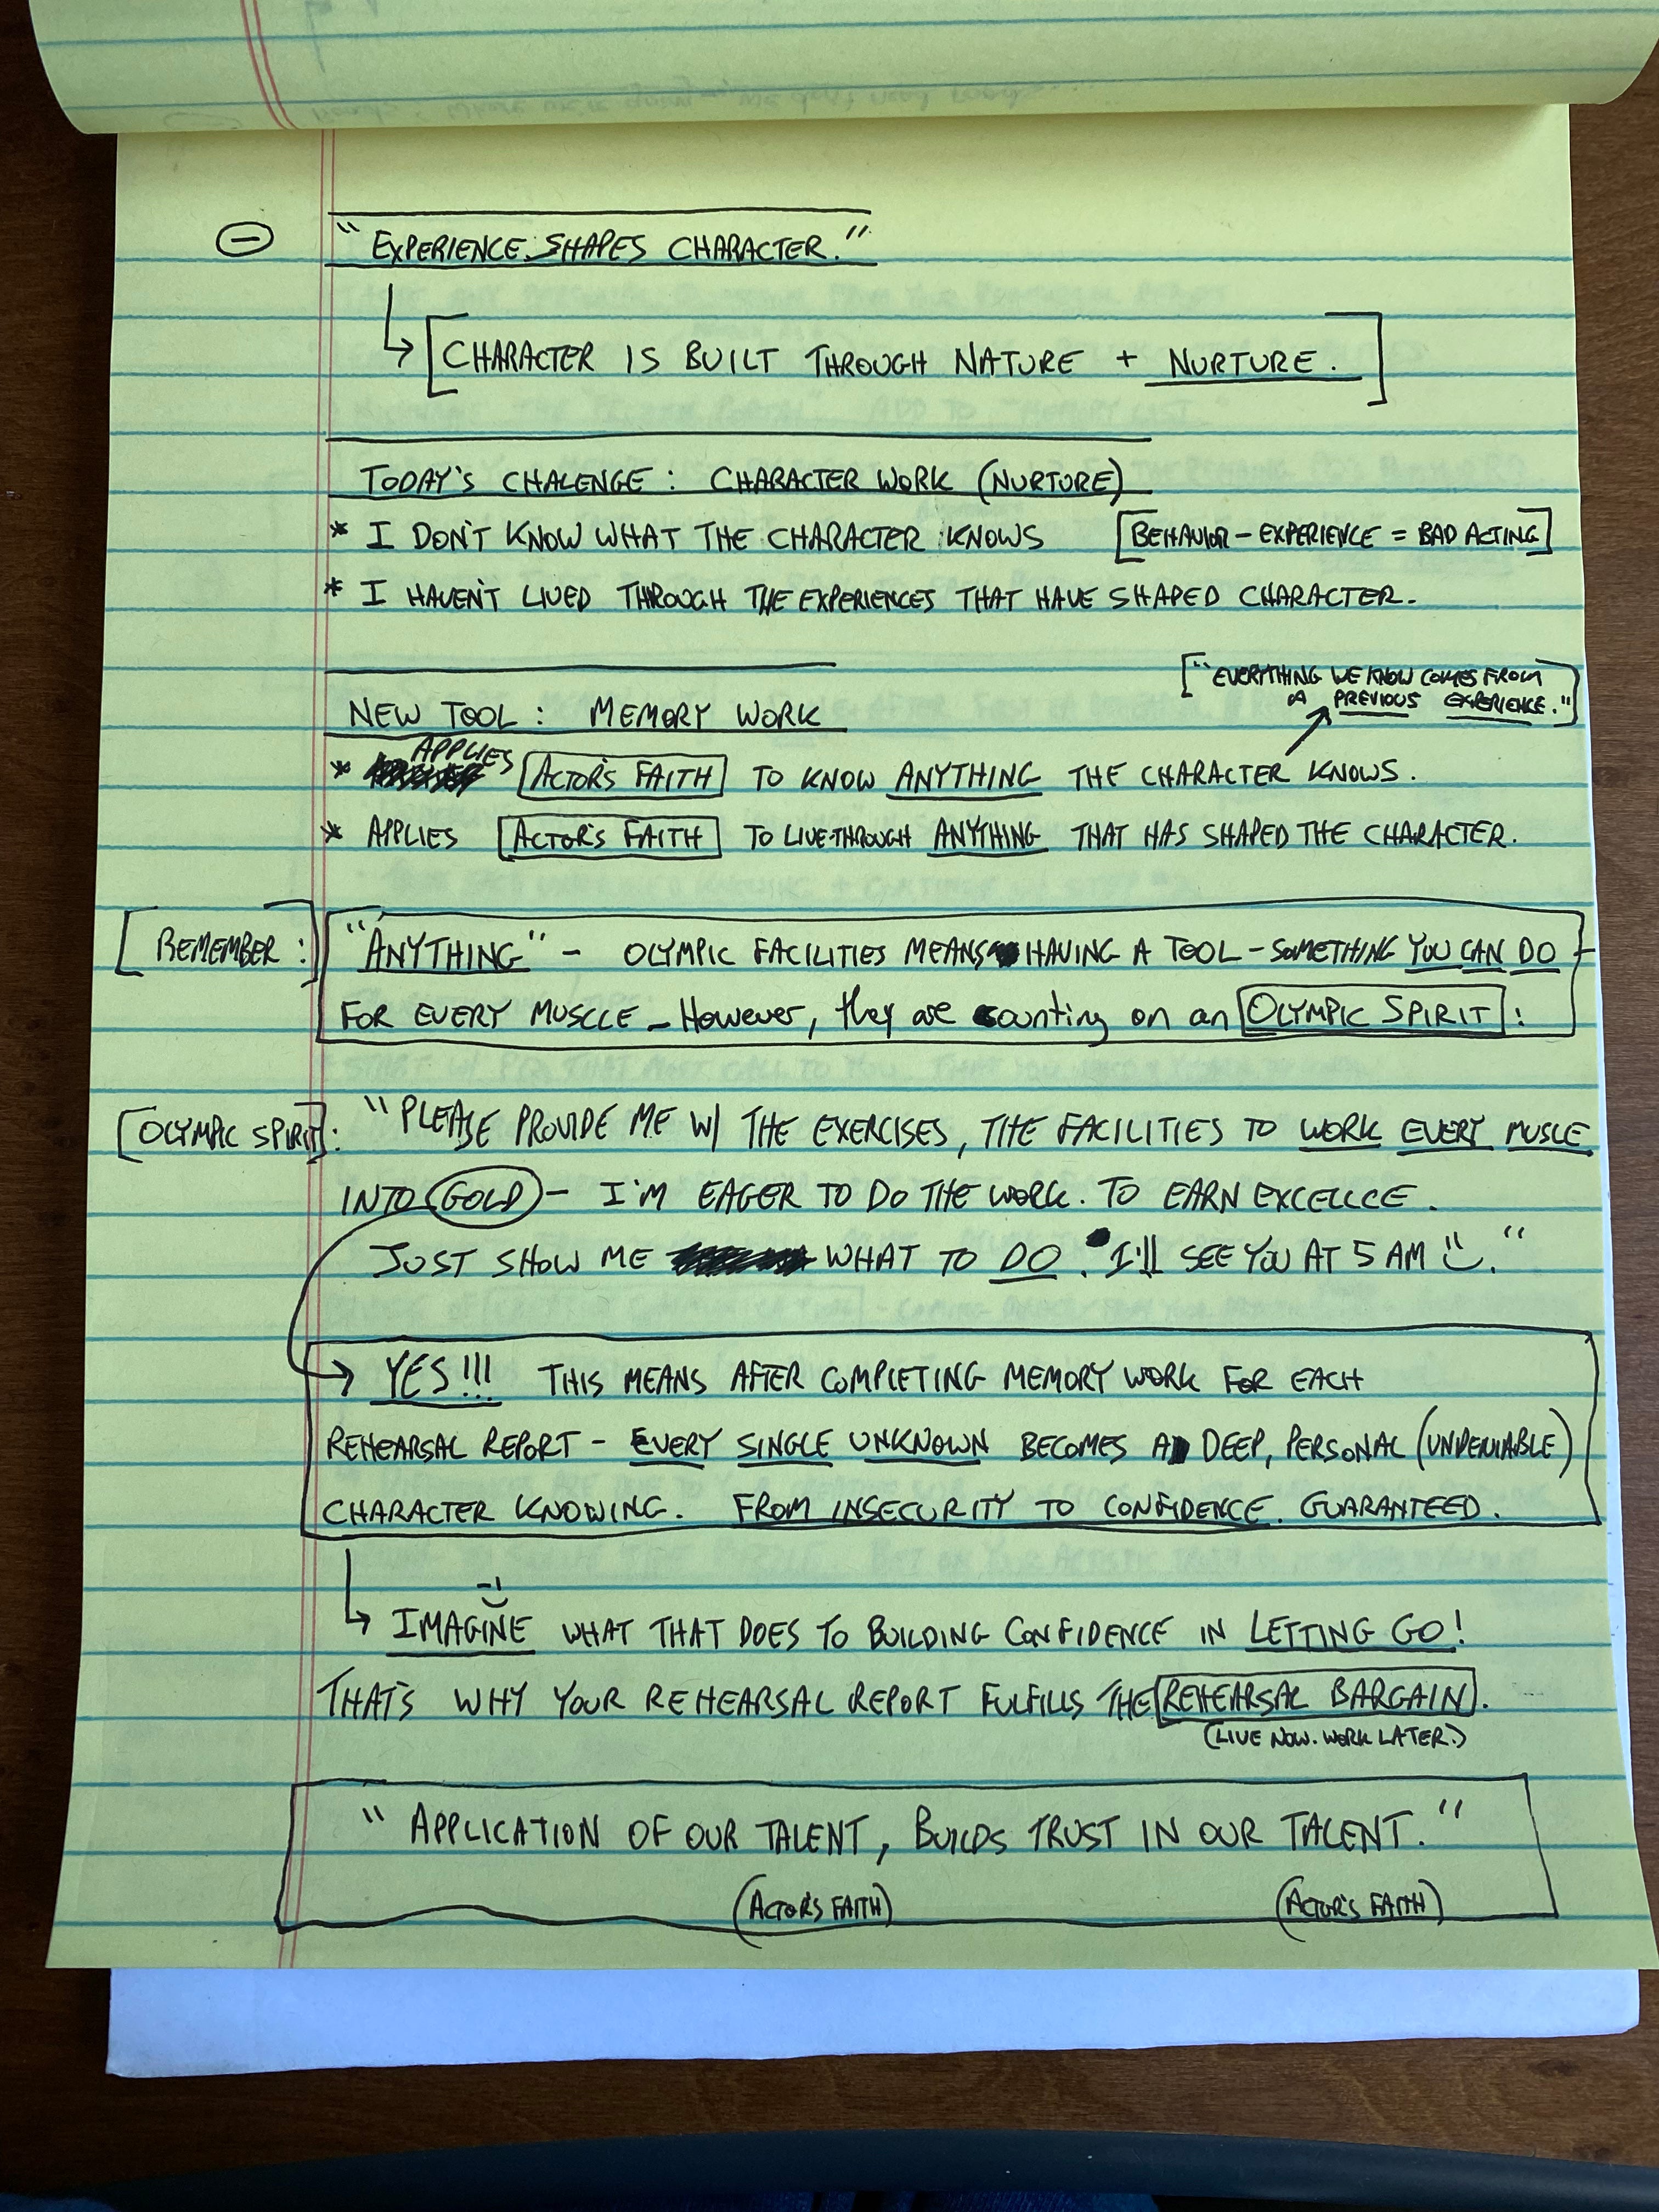 "EXPERIENCE SHAPES CHARACTER."
CHARACTER IS BUILT THROUGH NATURE + NURTURE.
TODAY'S CHALENGE: CHARACTER WORK (NURTURE)
* I DON'T KNOW WHAT THE CHARACTER KNOWS [BEHAVIOR - EXPERIENCE = BAD ACTING]
* I HAVEN'T LIVED THROUGH THE EXPERIENCES THAT HAVE SHAPED CHARACTER.
["EVERYTHING WE KNOW COMES FROM
A PREVIOUS EXPERIENCE."]
NEW TOOL: MEMORY WORK
* APPLIES ACTOR'S FAITH TO KNOW ANYTHING THE CHARACTER KNOWS.
* APPLIES ACTOR'S FAITH TO LIVE-THROUGH ANYTHING THAT HAS SHAPED THE CHARACTER.
[REMEMBER:] "ANYTHING" - OLYMPIC FACILITIES MEANS HAVING A TOOL - SOMETHING YOU CAN DO -
FOR EVERY MUSCLE - However, they are counting on an OLYMPIC SPIRIT:
[OLYMPIC SPIRIT]: "PLEASE PROVIDE ME W/ THE EXERCISES, THE FACILITIES TO WORK EVERY MUSLE
INTO GOLD - I'M EAGER TO DO THE WORK. TO EARN EXCELLCE.
JUST SHOW ME WHAT TO DO. I'll SEE YOU AT 5 AM."
YES!!! THIS MEANS AFTER COMPLETING MEMORY WORK FOR EACH
REHEARSAL REPORT - EVERY SINGLE UNKNOWN BECOMES A DEEP, PERSONAL (UNDENIABLE)
CHARACTER KNOWING. FROM INSECURITY TO CONFIDENCE. GUARANTEED.
IMAGINE WHAT THAT DOES TO BUILDING CONFIDENCE IN LETTING GO!
THAT'S WHY YOUR REHEARSAL REPORT FULFILLS THE REHEARSAL BARGAIN.
(LIVE NOW. WORK LATER.)
"APPLICATION OF OUR TALENT, BUILDS TRUST IN OUR TALENT."
(ACTOR'S FAITH) (ACTOR'S FAITH)